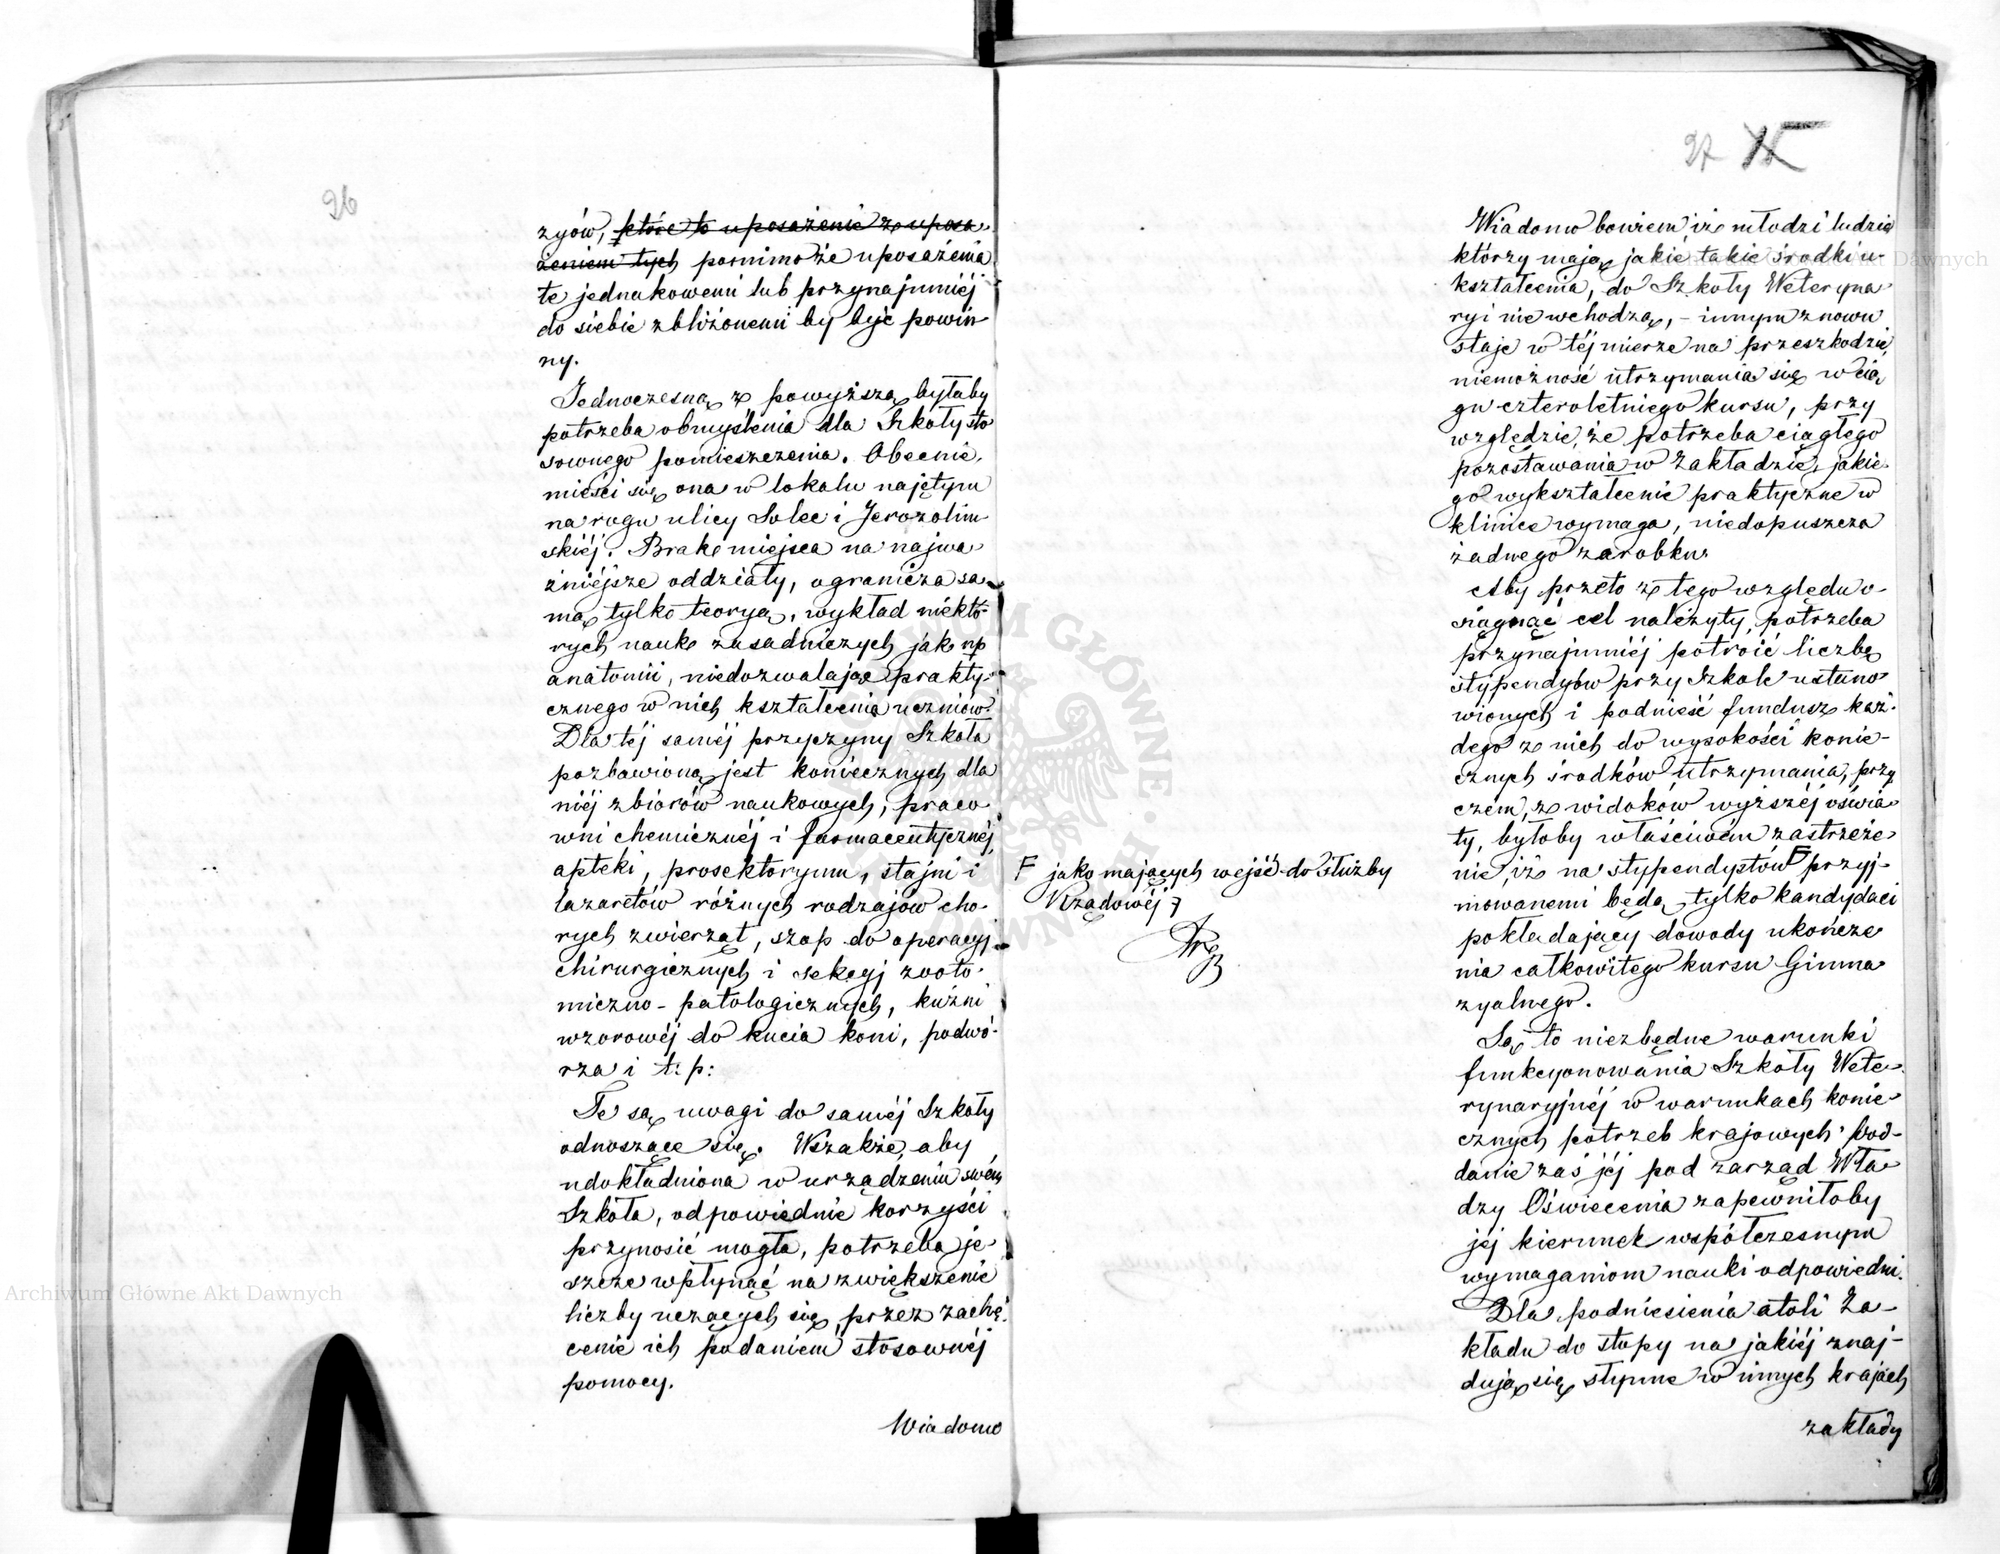 26
zyów, które to uposażenie z uposa-
żeniem tych pomimo że uposażenia
te jednakowemi lub przynajmniéj
do siebie zbliżonemi by być powin
ny.
Jednoczesną z powyższą byłaby
potrzeba obmyślenia dla Szkoły sto
sownego pomieszczenia. Obecnie,
mieści się ona w lokalu najętym
na rogu ulicy Solec i Jerozolim
skiéj. Brak miejsca na najwa
żniejsze oddziały, ogranicza sa-
mą tylko teoryą, wykład niektó-
rych nauk zasadniczych jak np
anatomii, niedozwalając prakty-
cznego w nich kształcenia uczniów.
Dla téj saméj przyczyny Szkoła
pozbawioną jest koniecznych dla
niéj zbiorów naukowych, praco
wni chemicznéj i farmaceutycznéj,
apteki, prosektoryum, stajni i
lazaretów różnych rodzajów cho-
rych zwierząt, szop do operacyj
chirurgicznych i sekcyj zooto-
miczno-patologicznych, kuźni
wzorowéj do kucia koni, podwó-
rza i t: p:
Te są uwagi do saméj Szkoły
odnoszące się. Wszakże, aby
udokładniona w urządzeniu swém
Szkoła, odpowiednie korzyści
przynosić mogła, potrzeba je-
szcze wpłynąć na zwiększenie
liczby uczących się, przez zachę-
cenie ich podaniem stosownéj
pomocy.
Wiadomo
27
Wiadomo bowiem iż młodzi ludzie
którzy mają jakie takie środki u-
kształcenia, do Szkoły Weteryna
ryi nie wchodzą, – innym znowu
staje w téj mierze na przeszkodzie,
niemożność utrzymania się w cią
gu czteroletniego kursu, przy
względzie, że potrzeba ciągłego
pozostawania w Zakładzie, jakie-
go wykształcenie praktyczne w
klinice wymaga, niedopuszcza
żadnego zarobku.
Aby przeto z tego względu o-
siągnąć cel należyty, potrzeba
przynajmniéj potroić liczbę
stypendyów przy Szkole ustano
wionych i podnieść fundusz każ-
dego z nich do wysokości konie-
cznych środków utrzymania, przy
czém, z widoków wyższéj oświa
ty, byłoby właściwém zastrzeże-
nie, iż na stypendystów F przyj-
mowanemi będą tylko kandydaci
pokładający dowody ukończe
nia całkowitego kursu Gimna
zyalnego.
F jako mających wejść do Służby
Rządowéj
Są to niezbędne warunki
funkcyonowania Szkoły Wete-
rynaryjnéj w warunkach konie-
cznych potrzeb krajowych. Pod-
danie zaś jéj pod zarząd Wła-
dzy Oświecenia zapewniłoby
jéj kierunek współczesnym
wymaganiom nauki odpowiedni.
Dla podniesienia atoli Za-
kładu do stopy na jakiéj znaj-
dują się słynne w innych krajach
zakłady
Archiwum Główne Akt Dawnych